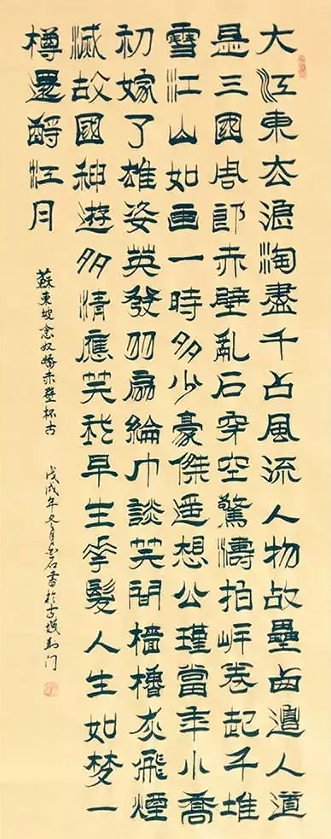 大江東去浪淘盡千古風流人物故壘西邊人道
是三國周郎赤壁亂石穿空驚濤拍岸卷起千堆
雪江山如畫一時多少豪傑遥想公瑾當年小喬
初嫁了雄姿英發羽扇綸巾談笑間檣櫓灰飛煙
滅故國神遊多情應笑我早生華髮人生如夢一
樽還酹江月
蘇東坡念奴嬌赤壁怀古 戊戌年冬月石書於古門